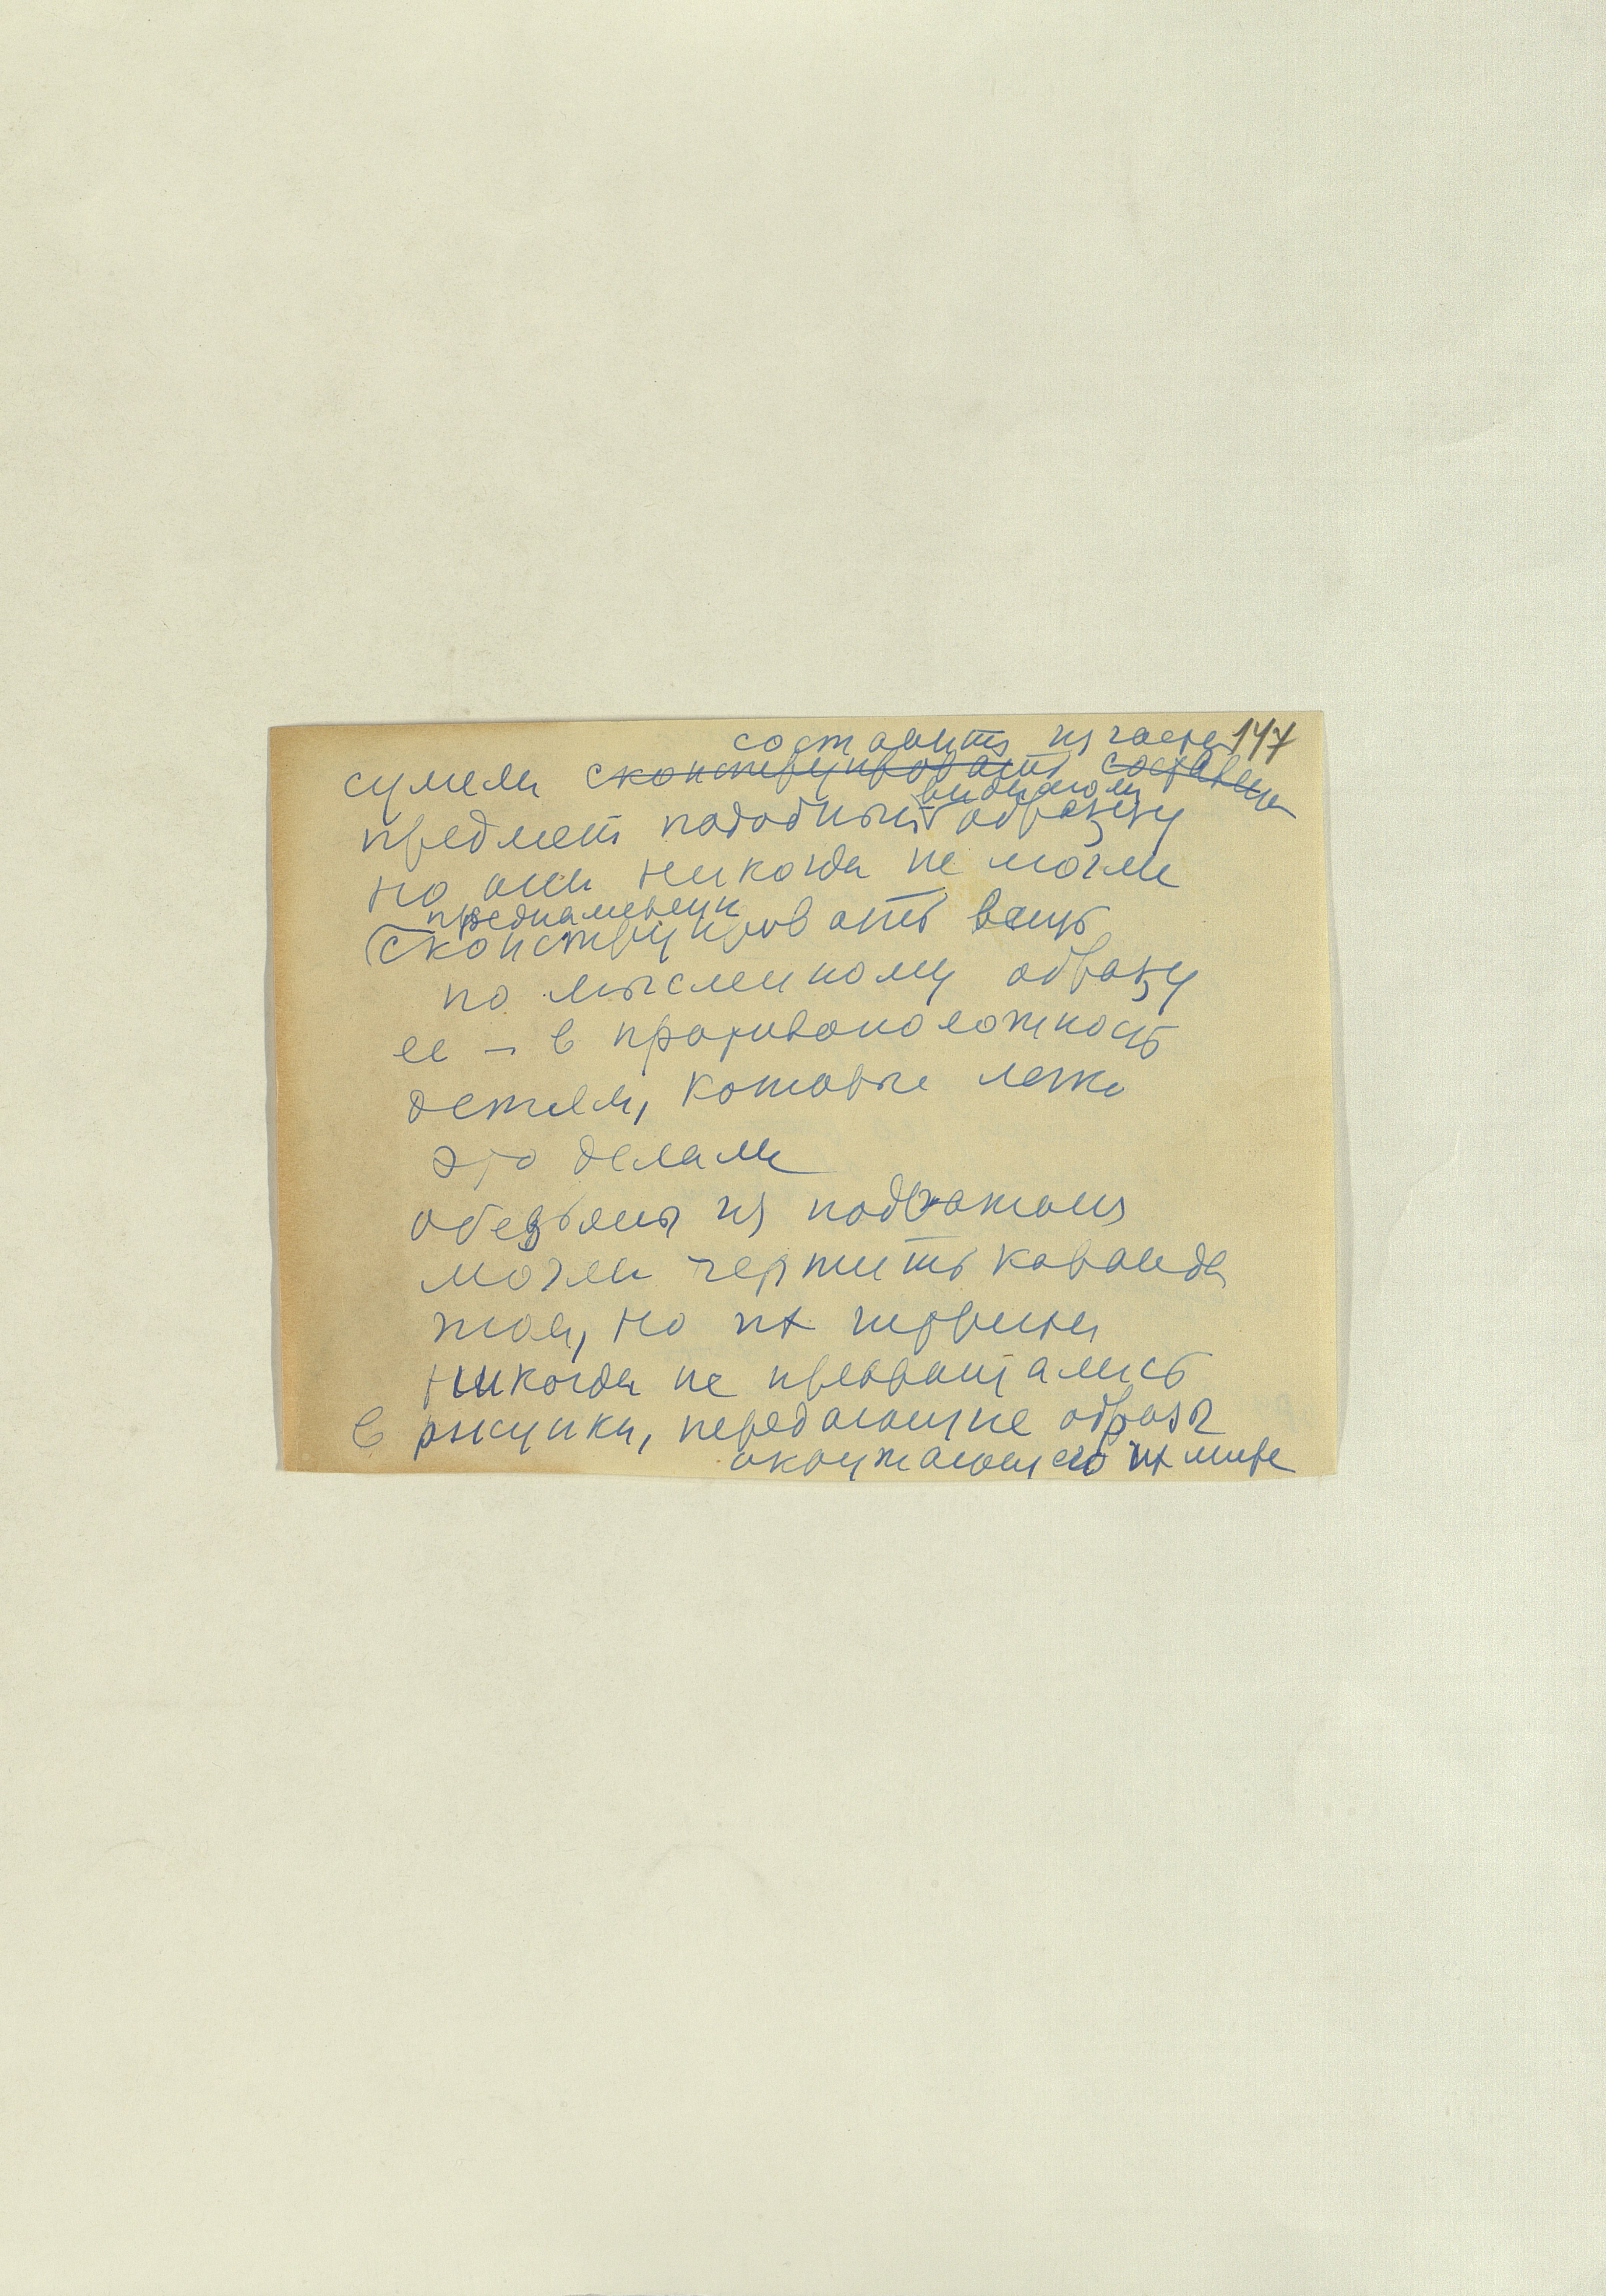 составить из части 147
сумели сконструировать составить
видимому
предмет подобный образцу
но они никогда не могли
преднамеренн
(сконструировать вещь
по мысленному образу
ее – в противоположность
детям, которые легко
это делали
обезьяны из подражания
могли чертить каранда
шом, но их штрихи
никогда не превращались
в рисунки, передающие образы
окружающего их мира